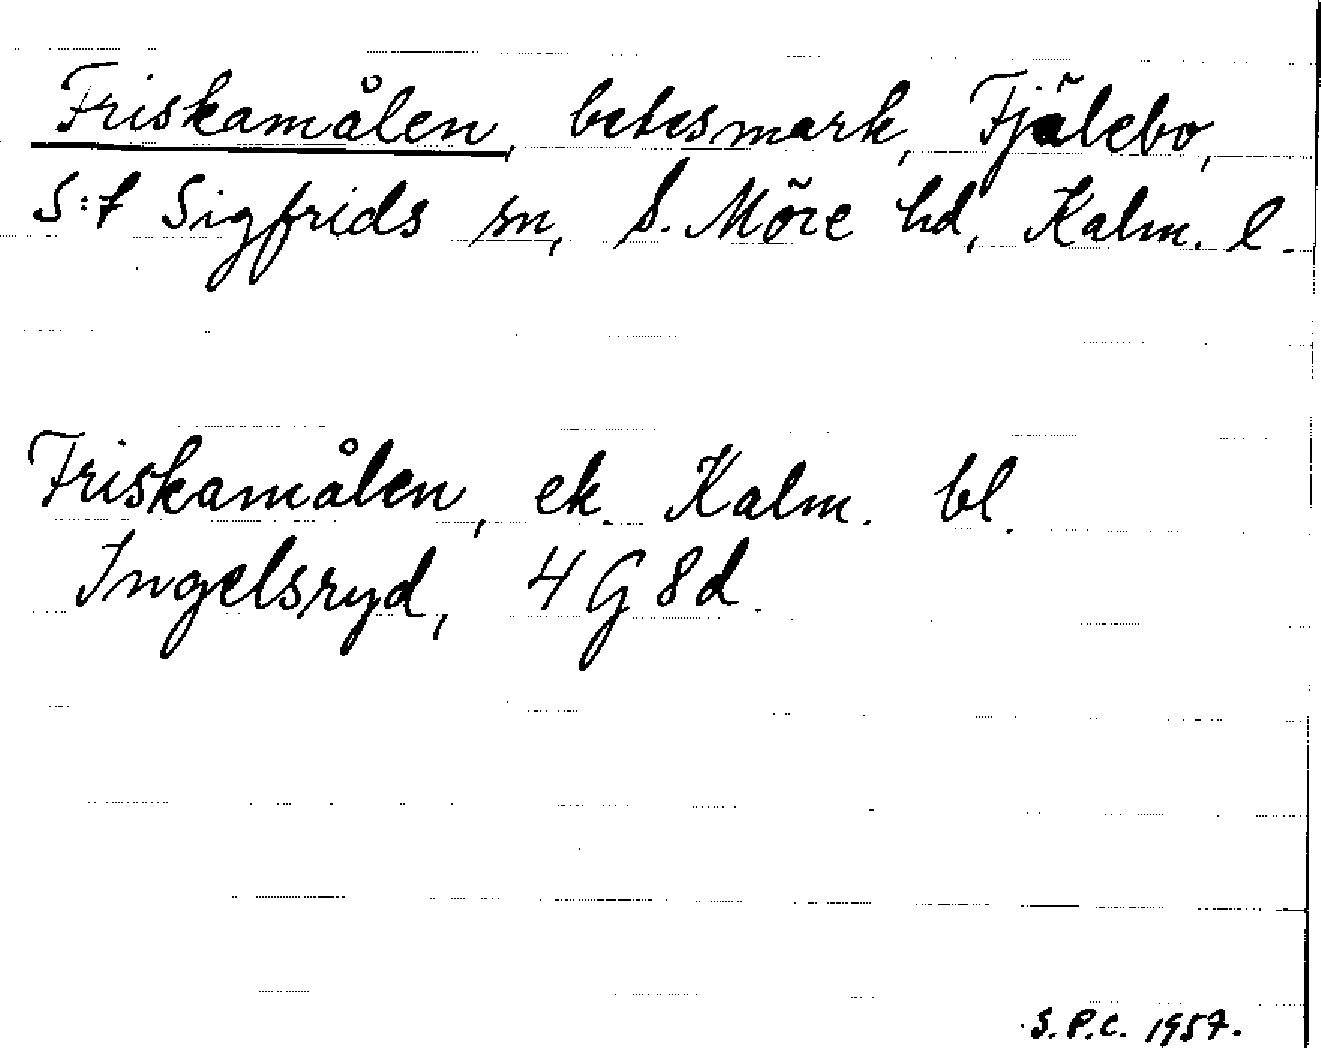 Friskamålen, betesmark, Fjälebo,
S:t Sigfrids sn, S. Möre hd, Kalm. l.
Friskamålen, ek. Kalm. bl.
Ingelsryd, 4 G 8d.
S.P.C. 1957.